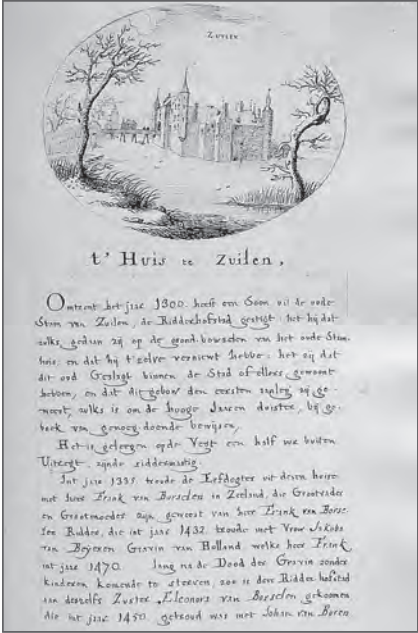 ZUYLEN
t' Huis te Zuilen,
Omtrent het jaar 1300. heeft een Soon uit de oude
Stam van Zuilen, de Ridderhofstad gestigt: het zij dat
zulks gedaan zij op de grond-bouwselen van het oude Stam-
huis, en dat hij 't zelve vernieut hebbe: het zij dat
dit oud Geslagt binnen de Stad of elders, gewoont
hebben, en dat dit gebou den eersten aanleg zij ge-
weest, zulks is om de hooge Jaaren duister, bij ge-
brek van genoeg-doende bewijsen,
Het is geleegen op de Vegt een half uur buiten
Uitregt, zijnde riddermatig.
Int jaar 1335 troude de Erfdogter uit desen huise
met heer Frank van Borselen in Zeeland, die Grootvader
en Grootmoeder zijn geweest van heer Frank van Borse-
len Ridder, die int jaar 1432 troude met Vrou Jakoba
van Beyeren Gravin van Holland welke heer Frank
int jaar 1470 lang na de Dood der Gravin zonder
kinderen komende te sterven, zoo is dese Ridder hofstad
aan deszelfs Zuster Eleonora van Borselen gekoomen
die int jaar 1450 getroud was met Johan van Buren